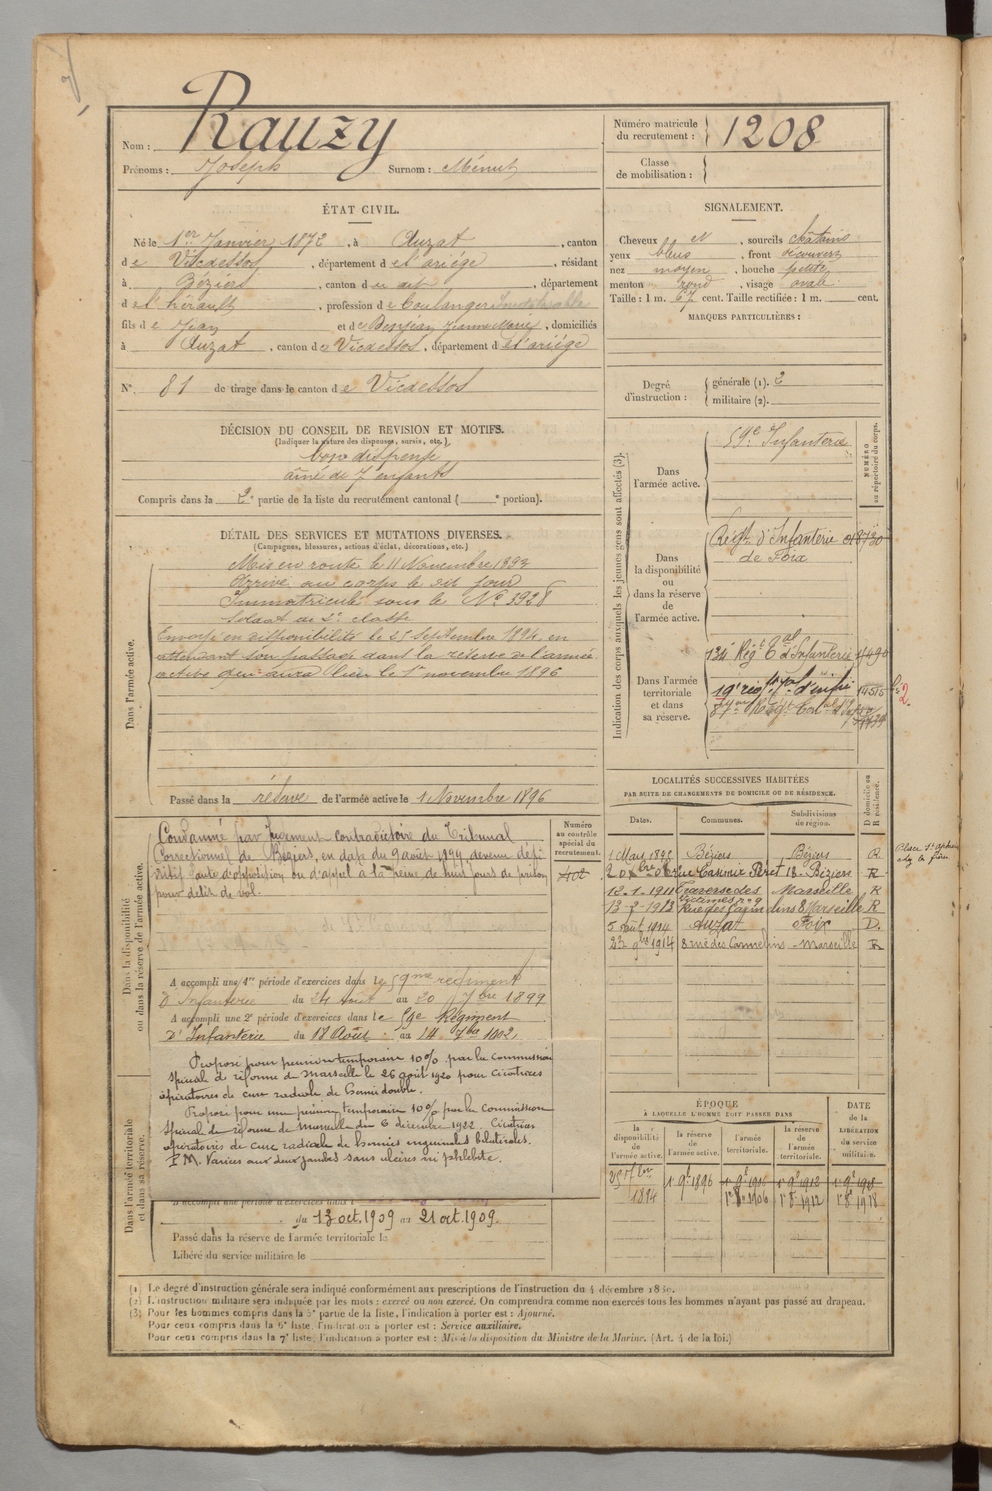 Nom : Rauzy
Prénoms : Joseph Surnom : Ménut
Numéro matricule du recrutement : 1208
Classe de mobilisation :
ÉTAT CIVIL.
Né le 1er Janvier 1872, à Auzat, canton
de Vicdessos, département de l'ariège, résidant
à Béziers, canton du dit, département
de l'hérault, profession de boulanger
fils de Jean et de Jeanne Marie, domiciliés
à Auzat, canton de Vicdessos, département de l'ariège
N° 81 de tirage dans le canton de Vicdessos
SIGNALEMENT.
Cheveux et, sourcils châtains
yeux bleus, front découvert
nez moyen, bouche petite
menton rond, visage ovale
Taille : 1 m. 67 cent. Taille rectifiée : 1 m. cent.
MARQUES PARTICULIÈRES :
Degré d'instruction : générale (1). 2
militaire (2).
DÉCISION DU CONSEIL DE REVISION ET MOTIFS.
(Indiquer la nature des dispenses, sursis, etc.)
bon dispensé
aîné de 7 enfants
Compris dans la 2e partie de la liste du recrutement cantonal ( e portion).
DÉTAIL DES SERVICES ET MUTATIONS DIVERSES.
(Campagnes, blessures, actions d'éclat, décorations, etc.)
Dans l'armée active.
Mis en route le 11 Novembre 1893
Arrivé au corps le dit jour
Immatriculé sous le N° 3928
Soldat de 2e classe
Envoyé en disponibilité le 25 Septembre 1894, en
attendant son passage dans la réserve de l'armée
active qui aura lieu le 1er novembre 1896
Passé dans la réserve de l'armée active le 1 Novembre 1896
Indication des corps auxquels les jeunes gens sont affectés (3).
NUMÉRO au répertoire du corps.
Dans l'armée active.
59e Infanterie
Dans la disponibilité ou dans la réserve de l'armée active.
Régt d'Infanterie
de Foix
Dans l'armée territoriale et dans sa réserve.
134 Régt Tal d'Infanterie
LOCALITÉS SUCCESSIVES HABITÉES
PAR SUITE DE CHANGEMENTS DE DOMICILE OU DE RÉSIDENCE.
D domicile ou R résidence.
Dates. Communes. Subdivisions de région.
Béziers Béziers R
rue Casimir Péret 13 Béziers R
12-1-1911 Traverse des Marseille R
Victimes n° 9
13-2-1913 8 Marseille R
5 août 1914 Auzat Foix D.
1914 Marseille R
Dans la disponibilité ou dans la réserve de l'armée active.
Numéro au contrôle spécial du recrutement.
Condamné par Jugement contradictoire du Tribunal
Correctionnel de Béziers, en date du 9 août 1894, devenu défi
nitif faute d'opposition ou d'appel à la peine de huit jours de prison
pour délit de vol.
A accompli une 1re période d'exercices dans le 59me régiment
d'Infanterie du 24 Août au 20 7bre 1899
A accompli une 2e période d'exercices dans le Régiment
d'Infanterie du 18 Août au 14 7bre 1902
Proposé pour pension temporaire 10% par la commission
spéciale de réforme de Marseille le 26 août 1920 pour cicatrices
opératoires de cure radicale de hernie double.
Proposé pour une pension temporaire 10% par la Commission
Spéciale de réforme de Marseille du 6 décembre 1922. Cicatrices
opératoires de cure radicale de hernies inguinales bilatérales.
P.M. Varices aux deux jambes sans ulcères ni phlébite.
Dans l'armée territoriale et dans sa réserve.
du 13 oct. 1909 au 21 oct. 1909.
Passé dans la réserve de l'armée territoriale le
Libéré du service militaire le
ÉPOQUE
À LAQUELLE L'HOMME DOIT PASSER DANS
DATE de la LIBÉRATION du service militaire.
la disponibilité de l'armée active. la réserve de l'armée active. l'armée territoriale. la réserve de l'armée territoriale.
25 7bre 1894 1er 9e 1896
(1) Le degré d'instruction générale sera indiqué conformément aux prescriptions de l'instruction du 4 décembre
(2) L'instruction militaire sera indiquée par les mots : exercé ou non exercé. On comprendra comme non exercés tous les hommes n'ayant pas passé au drapeau.
(3) Pour les hommes compris dans la 5e partie de la liste, l'indication à porter est : Ajourné.
Pour ceux compris dans la 6e liste, l'indication à porter est : Service auxiliaire.
Pour ceux compris dans la 7e liste, l'indication à porter est : Mis à la disposition du Ministre de la Marine. (Art. 4 de la loi.)